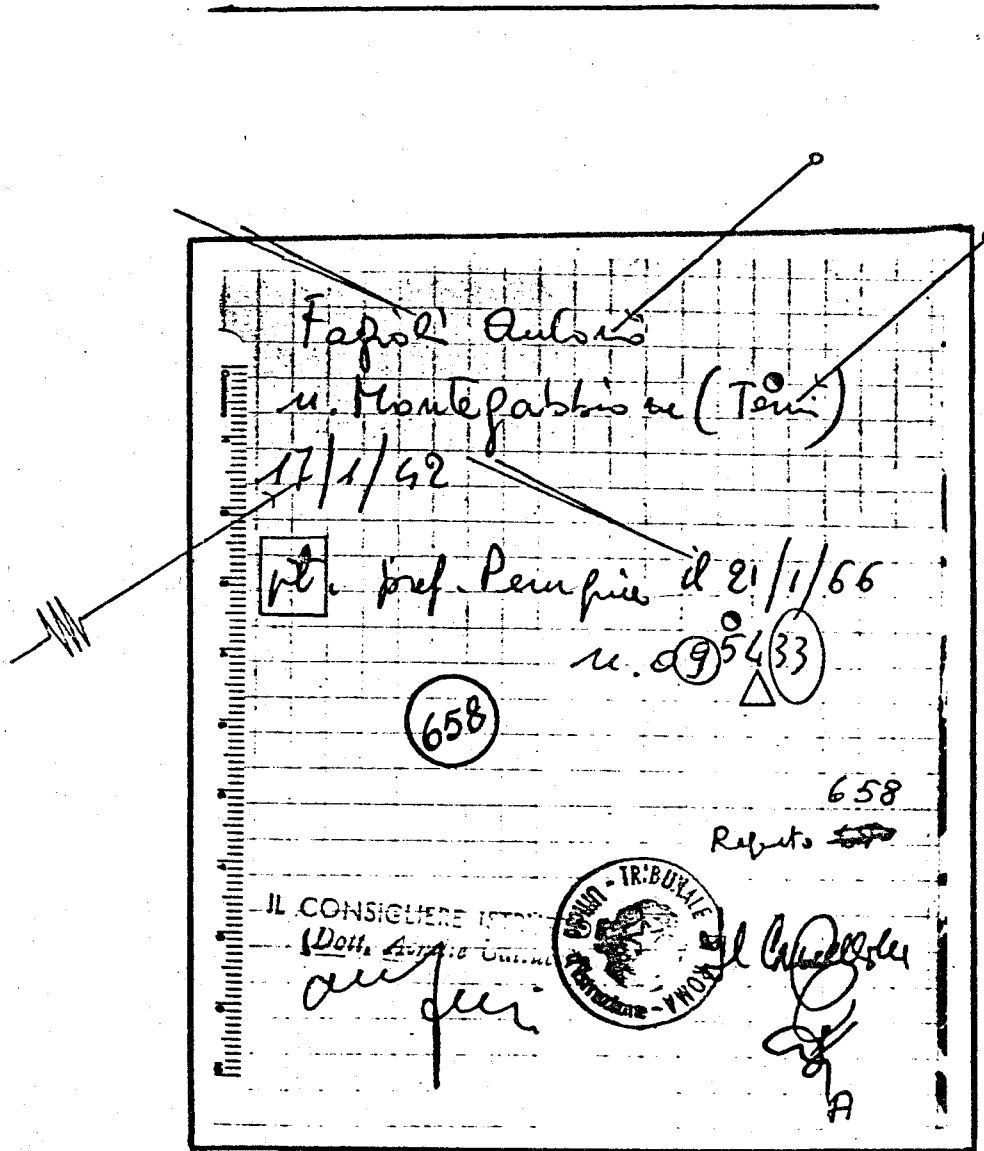 Fagioli Antonio
n. Montegabbione (Terni)
17/1/42
pt. pref. Perugia il 21/1/66
n. 095433
658
658
Reperto
IL CONSIGLIERE
(Dott.
TRIBUNALE DI ROMA
d'Istruzione
Il Cancelliere
A